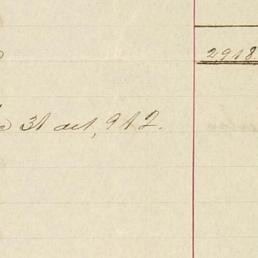 2,918
31 oct, 912.